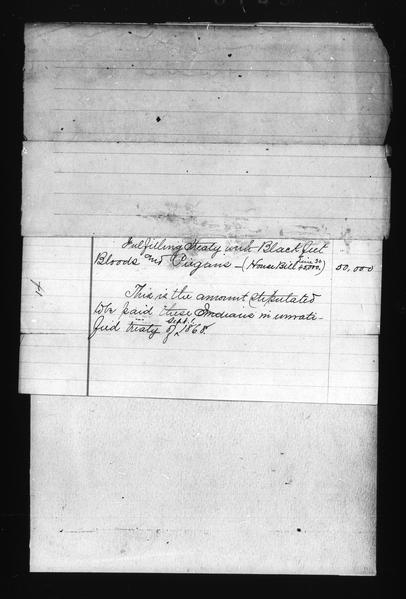 Fulfilling Treaty with Blackfeet
Bloods and Piegans - (House Bill 25,000.) 50,000
This is the amount stipulated
to be paid these Indians in unrati-
fied treaty of Sept. 1, 1868.